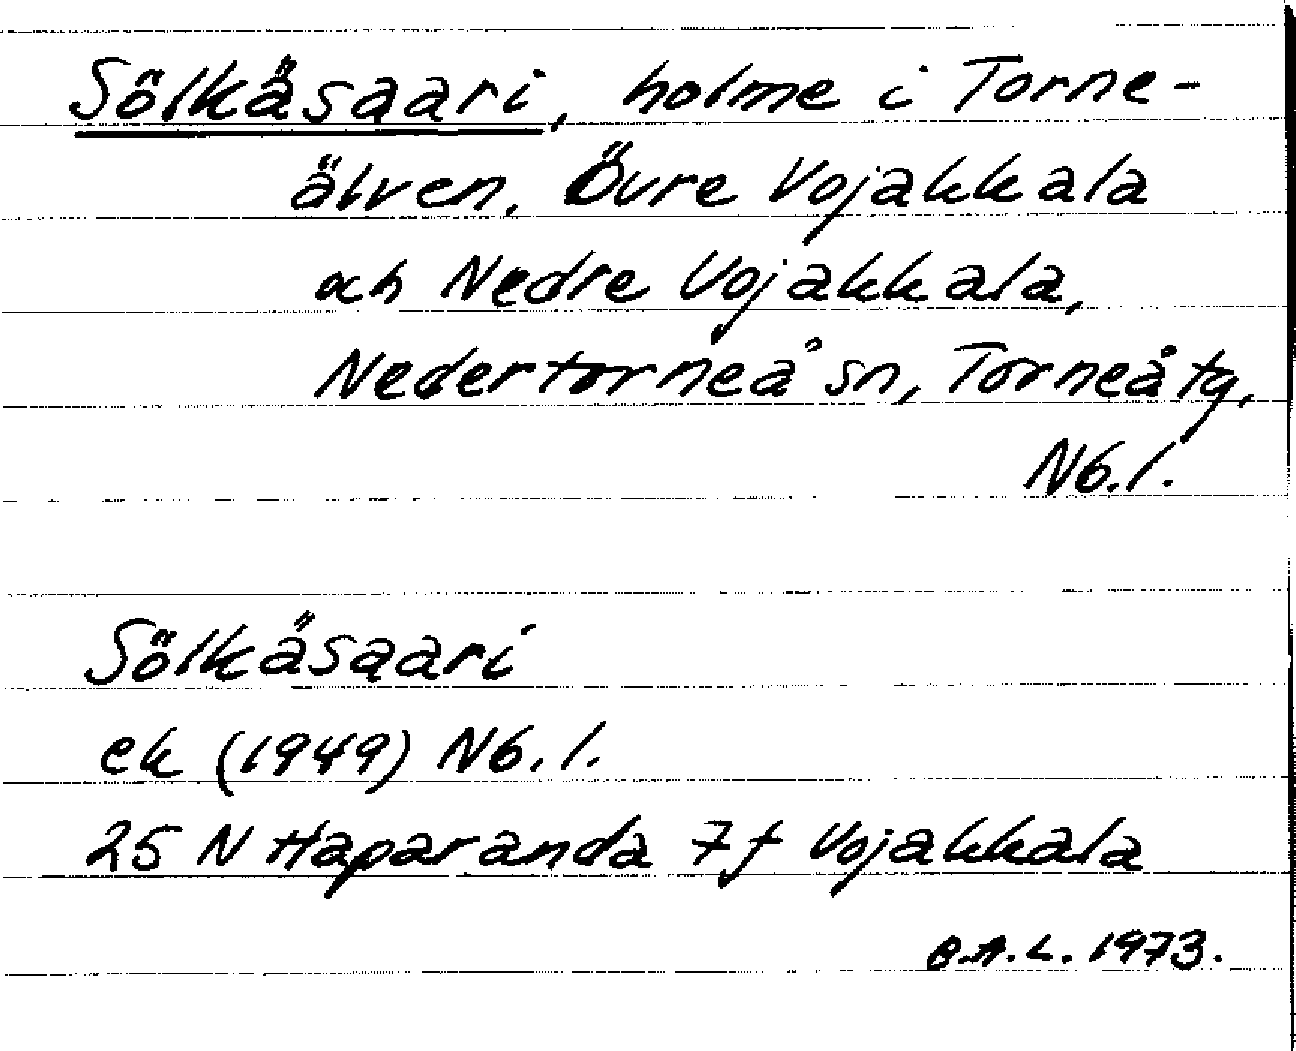 Sölkäsaari, holme i Torne-
älven, Övre Vojakkala
och Nedre Vojakkala,
Nedertorneå sn, Torneå tg,
Nb.l.
Sölkäsaari
ek (1949) Nb.l.
25 N Haparanda 7f Vojakkala
B.A.L. 1973.